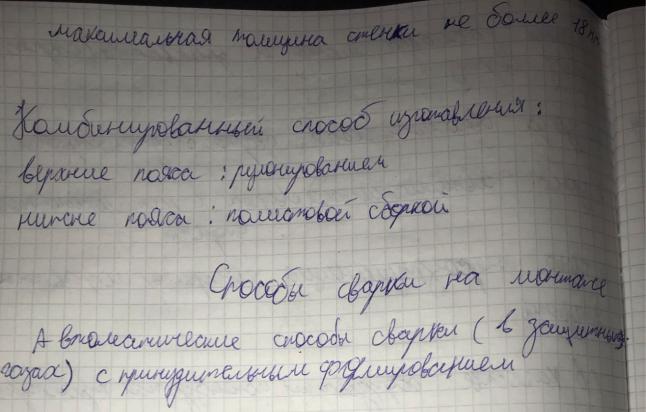 максимальная толщина стенки не более 18 мм
Комбинированный способ изготавления:
верхние пояса: рулонированием
нижне пояса: полистовой сборкой
Способы сварки на монтаже
Автоматические способы сварки (в защитных
газах) с принудительным формированием